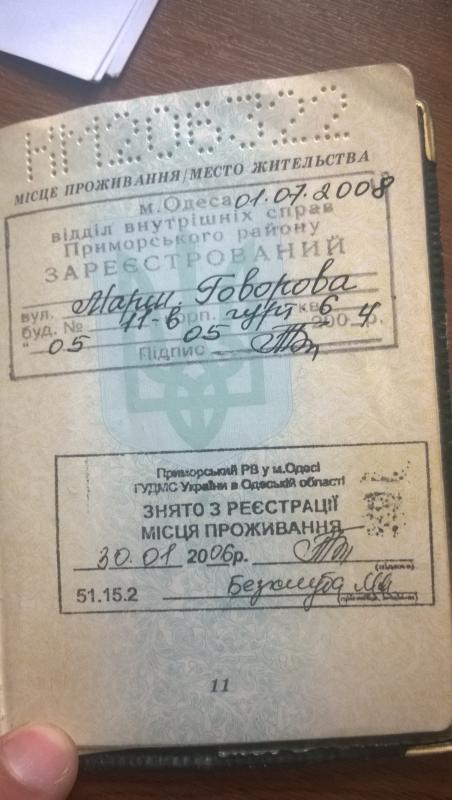 НМ206322
МІСЦЕ ПРОЖИВАННЯ/МЕСТО ЖИТЕЛЬСТВА
м.Одеса 01.07.2008
відділ внутрішніх справ
Приморського району
ЗАРЕЄСТРОВАНИЙ
вул. Марш. Говорова
буд. № 11-в корп. гурт кв. 6
" 05 05 200 4 р.
Підпис
Приморський РВ у м.Одесі
ГУДМС України в Одеській області
ЗНЯТО З РЕЄСТРАЦІЇ
МІСЦЯ ПРОЖИВАННЯ
30.01 2006р.
(підпис)
51.15.2
11